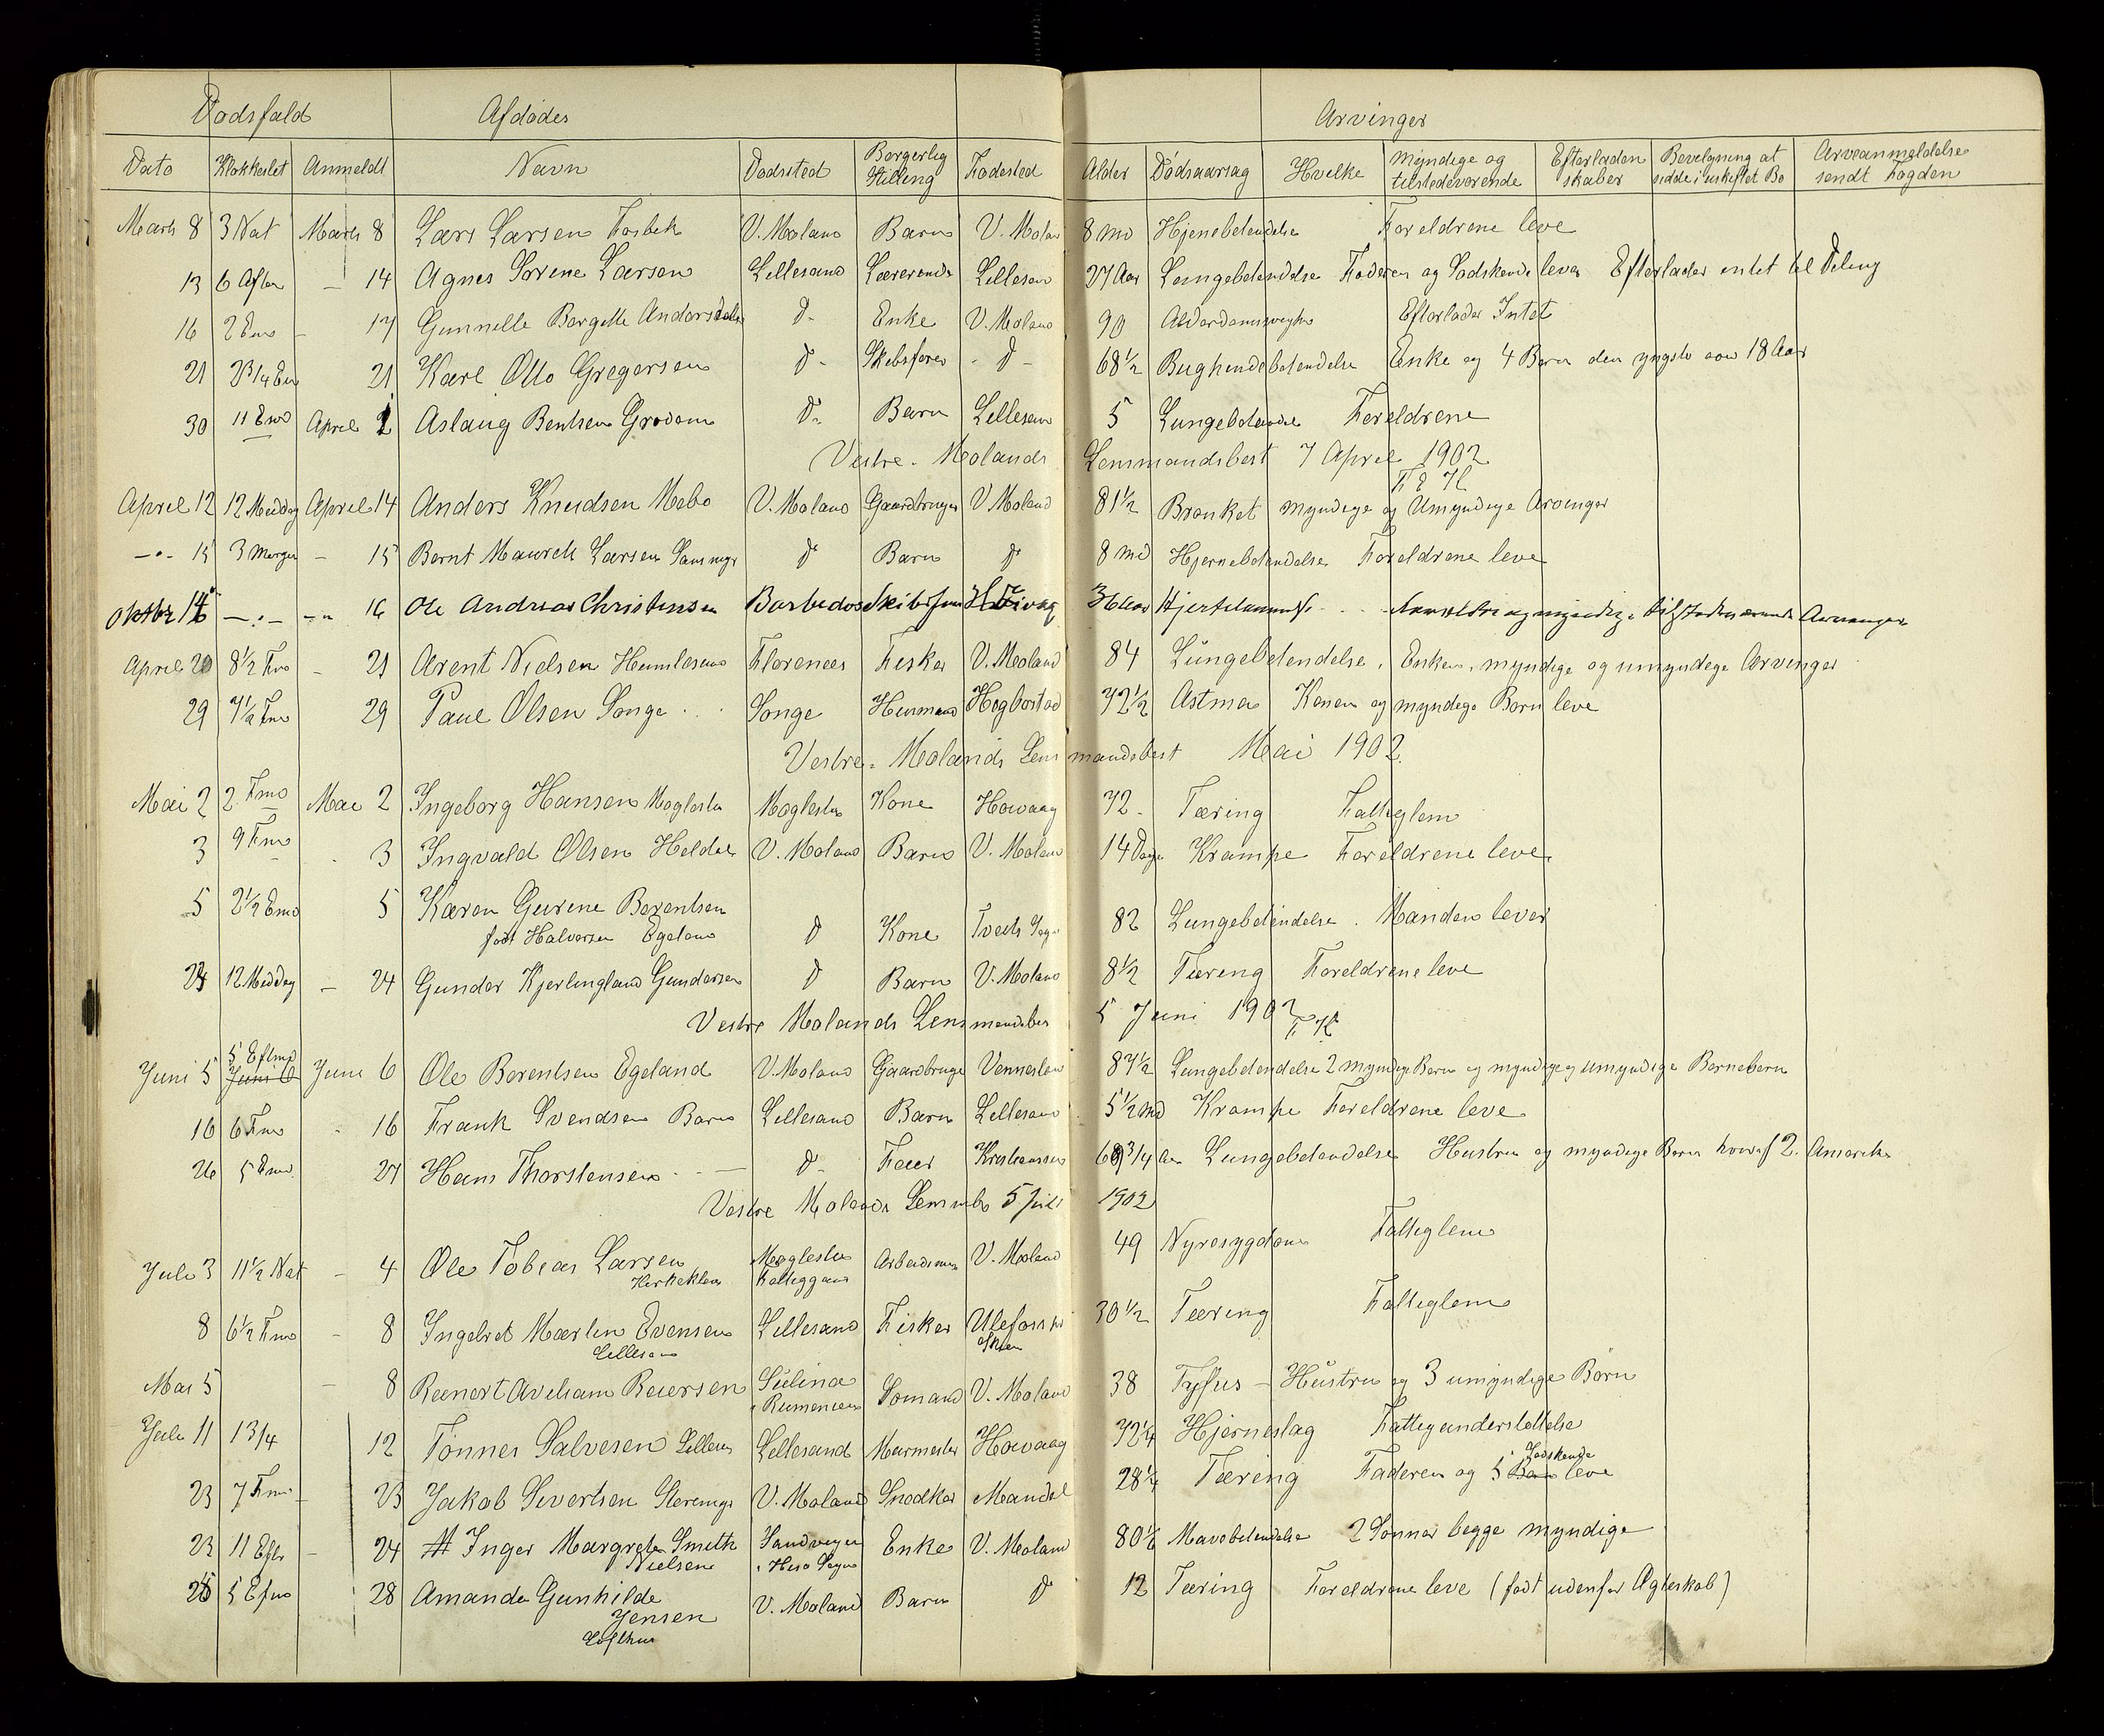 Dødsfald Afdødes Arvinger
Dato Klokkeslet Anmeldt Navn Dødssted Borgerlig Stilling Fødested Alder Dødsaarsag Hvilke Myndige og tilstedeværende Efterladenskaber Bevilgning at sidde i uskiftet Bo Arveanmeldelse sendt Fogden
Marts 8 3 Nat Marts 8 Lars Larsen Fosbek V. Moland Barn V. Moland 8 md Hjernebetendelse Foreldrene leve
13 6 Aften — 14 Agnes Sorene Larsen Lillesand Lærerinde Lillesand 27 Aar Lungebetendelse Faderen og Sødskende lever Efterlader intet til Deling
16 2 Emd — 17 Gunnille Bergitte Andersdatter d- Enke V. Moland 90 Alderdomssvaghe Efterlader Intet
21 2 3/4 Em 21 Karl Otto Gregersen d- Skibsfører - d - 68 1/2 Bughindebetendelse Enke og 4 Børn den yngste over 18 Aar
30 11 Emd April 2 Aslaug Bentsen Grødem d- Barn Lillesand 5 Lungebetendelse Foreldrene
Vestre-Molands Lensmandsbest 7 April 1902
April 12 12 Middag April 14 Anders Knudsen Mebø V. Moland Gaardbruger V. Moland 81 1/2 Bronkit myndige og Umyndige Arvinger
—"— 15 3 Morgen — 15 Bernt Mauritz Larsen d Barn d 8 md Hjernebetendelse Foreldrene leve
Oktbr 14 —"— —"— 16 Ole Andreas Christensen Barbados Skibsfører Høivåg 36 Aar Hjertelammelse Foreldre og myndige tilstedeværende Arvinger
April 20 8 1/2 Fmd — 21 Arent Nielsen Humlesund Florenes Fisker V. Moland 84 Lungebetendelse. Enken, myndige og umyndige Arvinger
29 7 1/2 Fmd 29 Paul Olsen Songe Songe Husmand Hegbostad 72 1/2 Astma Konen og myndige Børn leve
Vestre-Molands Lensmandsbest Mai 1902.
Mai 2 2 Fmd Mai 2 Ingeborg Hansen Møglestu Møglestu Kone Høvaag 72 - Tæring Fattiglem
3 9 Fmd 3 Ingvald Olsen Heldal V. Moland Barn V. Moland 14 Dage Krampe Foreldrene leve.
5 2 1/2 Emd 5 Karen Gurine Berentsen
født Halvorsen Egeland d Kone Tveits Sogn 82 Lungebetendelse. Manden lever
24 12 Middag — 24 Gunder Kjerlingland Gundersen d Barn V. Moland 8 1/2 Tæring Foreldrene leve
Vestre Molands Lensmandsbes 5 Juni 1902
Juni 5 5 Eftmd Juni 6 Juni 6 Ole Berentsen Egeland V. Moland Gaardbruger Venneslen 87 1/2 Lungebetendelse 2 myndige Børn og myndige og umyndige Børnebørn
16 6 Fmd - 16 Frank Svendsen Barn Lillesand Barn Lillesand 5 1/2 md Krampe Foreldrene leve
26 5 Emd. 27 Hans Thorstensen d- Feier Kristianssand 69 3/4 Aar Lungebetendelse Hustru og myndige Børn hvoraf 2 i Amerika
Vestre Molands Lensmbe 5 Juli 1902
Juli 3 11 1/2 Nat — 4 Ole Tobias Larsen Møglestu Fattiggaard Arbeidsmand V. Moland 49 Nyresygdom Fattiglem
8 6 1/2 Fmd — 8 Ingebret Martin Evensen Lillesand Lillesand Fisker Ulefoss pr Skien 30 1/2 Tæring Fattiglem
Mai 5 — 8 Reinert Avelsam Reiersen Sulina i Rumenien Sømand V. Moland 38 Tyfus — Hustru og 3 umyndige Børn
Juli 11 1 3/4 12 Tønnes Salvesen Lillesand Lillesand Murmester Høvaag 72 1/4 Hjerneslag Fattigunderstøttelse
23 7 Fmd 23 Jakob Sivertsen V. Moland Snedker Mandal 28 1/4 Tæring Faderen og 5 Børn Sødskende leve
23 11 Eft — 24 Inger Margrete Smith Nielsen Sandvigen i Hisø Sogn Enke V. Moland 80 1/2 Mavebetendelse 2 Sønner begge myndige
25 5 Efmd 28 Amanda Gunhilde
Jensen
Lofthus V. Moland Barn d 12 Tæring Foreldrene leve (født udenfor Ægteskab)